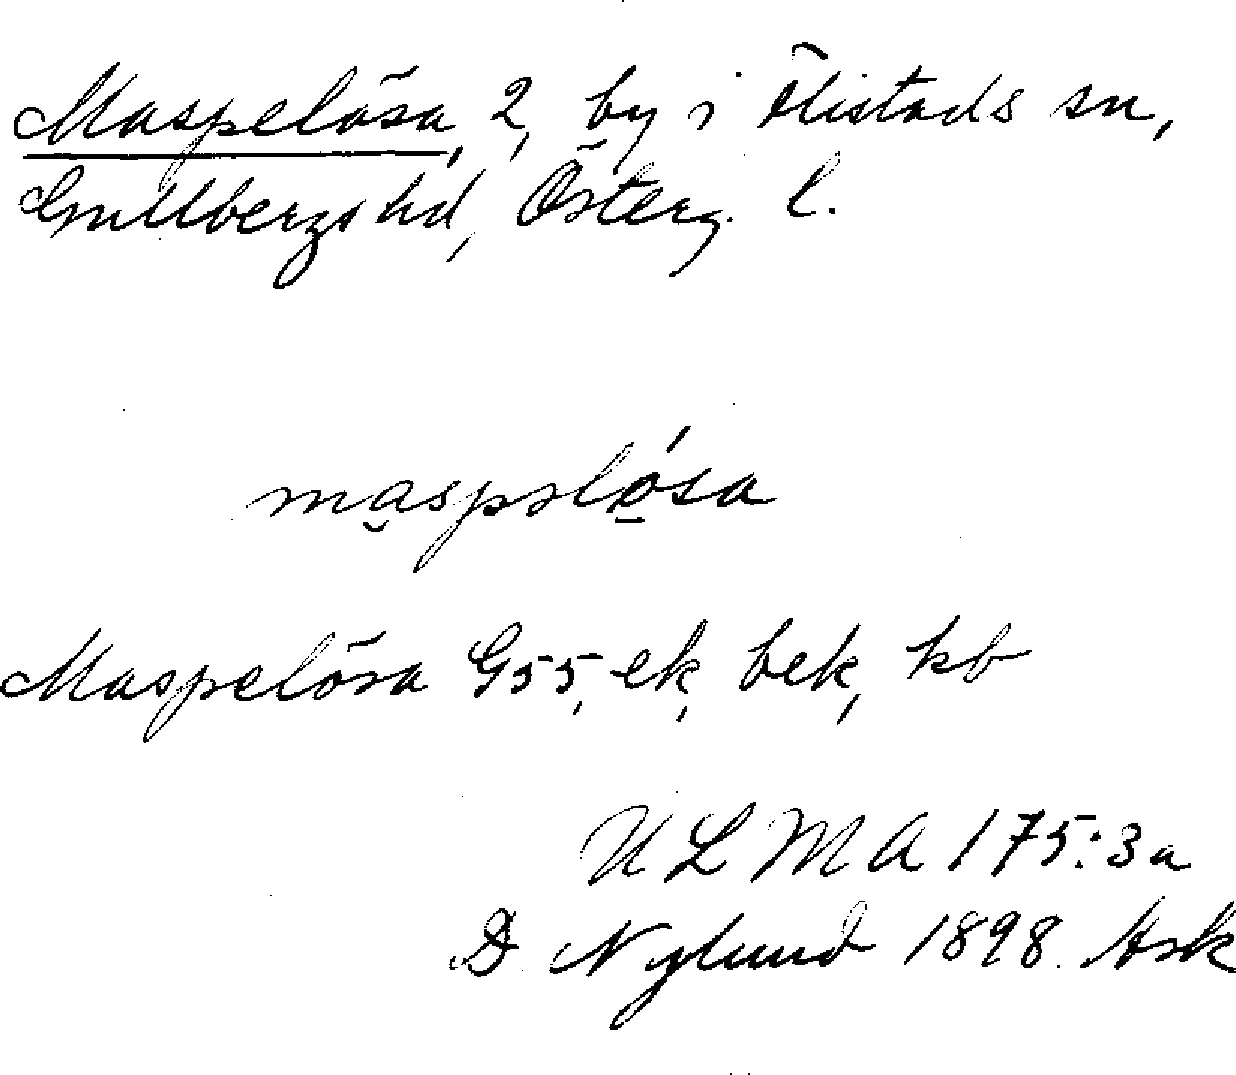 Maspelösa, 2, by i Flistads sn,
Gullbergs hd, Österg. l.
maspəlo̱´sa
Maspelösa G55, ek, bek, kb
ULMA 175:3a
D. Nylund 1898. Ask